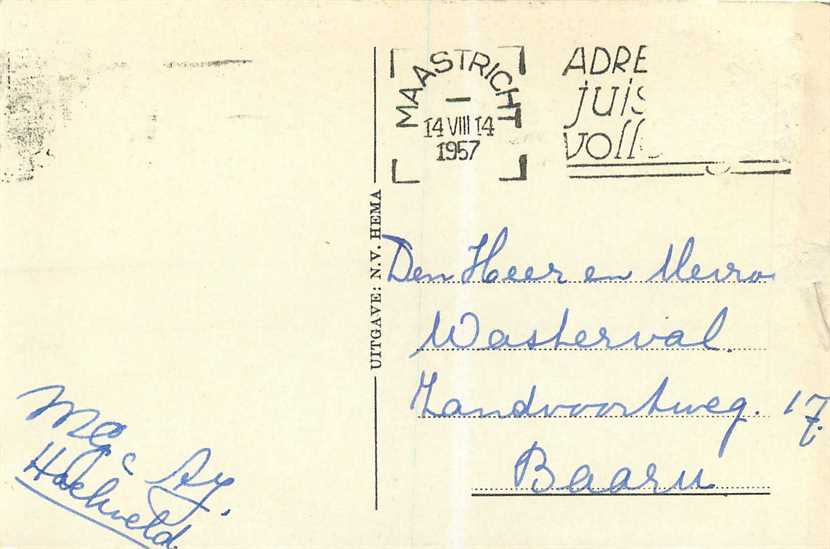 MAASTRICHT
14 VIII 14
1957
ADRE
juis
voll
UITGAVE: N.V. HEMA
Den Heer en Mevro
Wasterval.
Zandvoortweg. 17.
Baarn